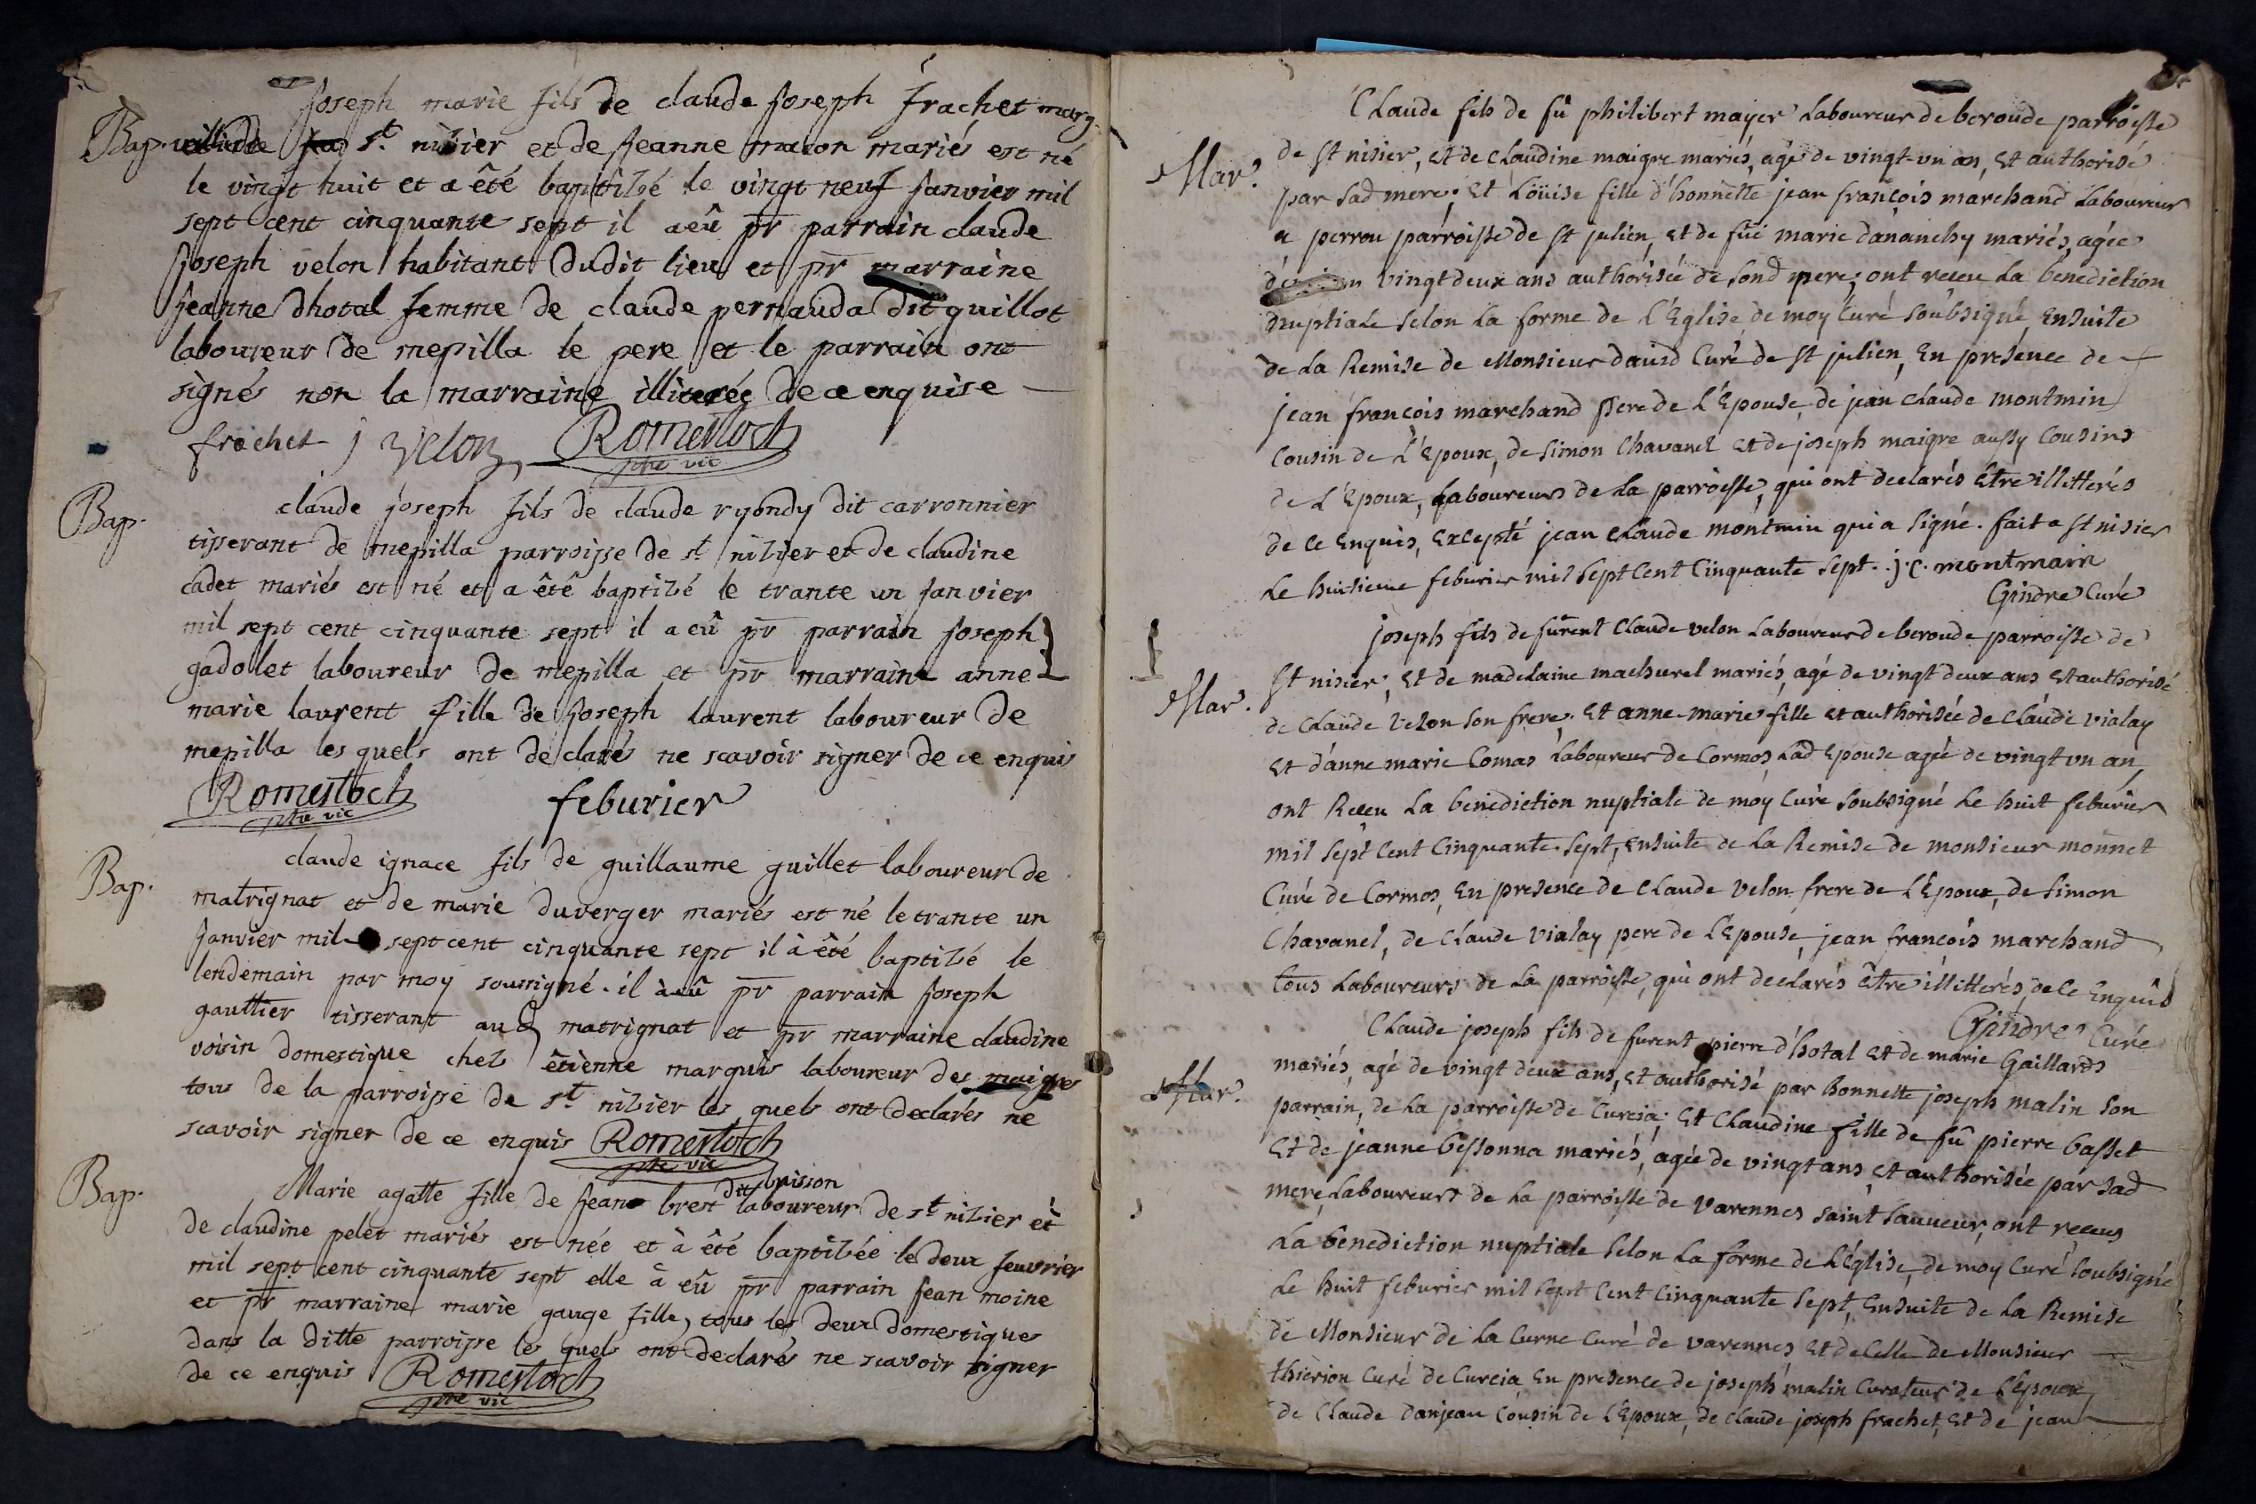 Joseph marie fils de claude Joseph frachet marg
Bap. st. nizier et de Jeanne macon mariés est né
le vingt huit et a êté baptizé le vingt neuf Janvier mil
sept cent cinquante sept il a eû pr parrain claude
Joseph velon habitant dudit lieu et pr marraine
jeanne dhotal femme de claude pernauda dit quillot
laboureur de mepilla le pere et le parrain ont
signés non la marraine illiterée de ce enquise
frachet j velon Romestoch
ptre vic
Bap. claude joseph fils de claude ryondy dit carronnier
tisserant de mepilla parroisse de st nizier et de claudine
cadet mariés est né et a êté baptizé le trante un janvier
mil sept cent cinquante sept il a eû pr parrain Joseph
gadolet laboureur de mepilla et pr marraine anne
marie laurent fille de Joseph laurent laboureur de
mepilla les quels ont declarés ne scavoir signer de ce enquis
Romestoch
ptre vic
feburier
Bap. claude ignace fils de guillaume guillet laboureur de
matrignat et de marie duverger mariés est né le trante un
Janvier mil sept cent cinquante sept il à êté baptizé le
lendemain par moy soussigné. il à eû pr parrain Joseph
gauttier tisserant aud matrignat et pr marraine claudine
voisin domestique chez êtienne marquis laboureur des maigres
tous de la parroisse de st. nizier les quels ont declarés ne
scavoir signer de ce enquis Romestoch
ptre vic
dit buisson
Bap. Marie agatte fille de Jean brest laboureur de st nizier et
de claudine pelet mariés est née et à êté baptizée le deux feuvrier
mil sept cent cinquante sept elle â eû pr parrain Jean moine
et pr marraine marie gauge fille, tous les deux domestiques
dans la ditte parroisse les quels ont declarés ne scavoir signer
de ce enquis Romestoch
ptre vic
Claude fils de fû philibert mayer Laboureur de beroude parroisse
Mar. de st nisier, et de claudine maigre mariés, agé de vingt-un an, et authorisé
par sad mere; et Loüise fille d'honnette jean françois marchand Laboureur
a perrou parroisse de st julien, et de fûe marie dananchy mariés, agée
vingt deux ans authorisée de sond pere; ont receu La bénediction
nuptiale selon La forme de L'Eglise, de moy Curé soubsigné, Ensuite
de La Remise de Monsieur david Curé de st julien, En presence de
jean francois marchand pere de L'Epouse, de jean claude montmin
Cousin de L'Epoux, de simon Chavanel et de joseph maigre aussy Cousins
de L'Epoux, Laboureurs de La parroisse, qui ont declarés être illitterés
de ce Enquis, Excepté jean claude montmin qui a signé. fait a st nisier
Le huitieme feburier mil sept Cent Cinquante sept. j.c. montmain
Gindre Curé
joseph fils de fûrent Claude velon Laboureur de beroude parroisse de
Mar. St nisier, et de madelaine machurel mariés, agé de vingt deux ans et authorisé
de Claude Velon son frere, Et anne-marie fille et authorisée de claude vialay
et d'anne marie Comas Laboureur de Cormos, Lad Epouse agée de vingt un an,
ont Receu La bénediction nuptiale de moy Curé soubsigné Le huit feburier
mil sept Cent Cinquante-sept, Ensuite de La Remise de monsieur monnet
Curé de Cormos, En presence de Claude velon frere de L'Epoux, de simon
Chavanel, de Claude vialay pere de L'Epouse, jean françois marchand
tous Laboureurs de La parroisse, qui ont declarés être illitterés, de ce Enquis
Gindre Curé
Claude joseph fils de furent pierre d'hotal et de marie Gaillard
Mar. mariés, agé de vingt deux ans, et authorisé par honnette joseph malin son
parrain, de La parroisse de Curcia; Et Claudine fille de fû pierre basset
Et de jeanne bessonna mariés, agée de vingt ans et authorisée par sad
mere, Laboureurs de La parroisse de Varennes saint sauveur, ont receus
La bénediction nuptiale selon La forme de L'Eglise, de moy Curé soubsigné
Le huit feburier mil sept Cent Cinquante sept, Ensuite de La Remise
de Monsieur de La Curne Curé de varennes et de Celle de Monsieur
thierion Curé de Curcia, En presence de joseph malin Curateur de L'Epoux,
de Claude danjean Cousin de L'Epoux, de claude joseph frachet, et de jean